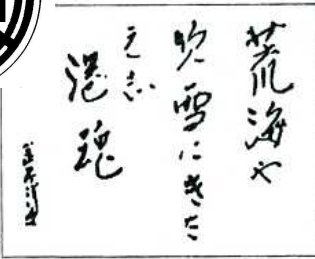 荒海や
吹雪にきた
え志
港魂